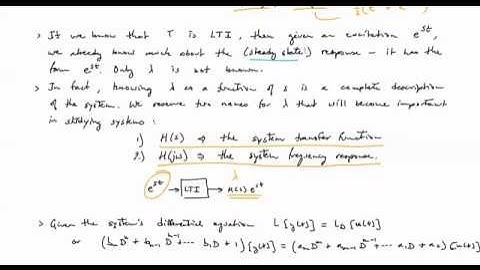 > If we know that T is LTI, then given an excitation e^st,
we already know much about the (steady state!) response – it has the
form e^st. Only λ is not known.
> In fact, knowing λ as a function of s is a complete description
of the system. We reserve two names for λ that will become important
in studying systems:
1) H(s) ⇒ the system transfer function
2) H(jω) ⇒ the system frequency response.
λ
e^st → LTI → H(s) e^st
> Given the system's differential equation L[y(t)] = L_D[u(t)]
or (b_n D^n + b_n-1 D^n-1 + ... b_1 D + 1)[y(t)] = (a_m D^m + a_m-1 D^m-1 + ... a_1 D + a_0)[u(t)]